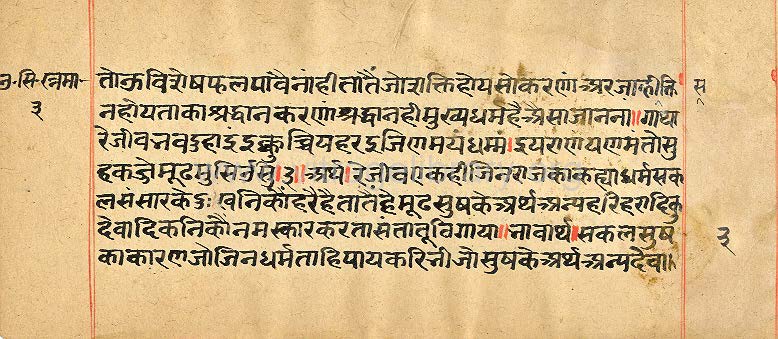 उ-सि-रत्नमा-
३
तोक्तविशेषफलपांवैनांहीतातैंजोशक्तिहोयसोकरणां अरजा
स
नहोयताकाश्रद्धानकरणांश्रद्धानहीमुख्यधर्महैऐसाजाननां॥गाथा
रेजीवनवदुहाइंइक्कुच्चियहरइजिणमयंधम्मं।इयराणंपणमंतोसु
हकज्जेमूढमुसिऊसि॥३॥ अर्थ।रेजीवएकहीजिनराजकाकह्याधर्मसक
लसंसारकेदुःखनिकौंहरैहैतातैंहेमूढसुषकेअर्थअन्यहरिहरादिकु
देवादिकनिकौंनमस्कारकरतासंतातूठिगाया॥भावार्थ।सकलसुष
काकारणजोजिनधर्मताहिपायकरिभीजोसुषकेअर्थअन्यदेवा॥
३